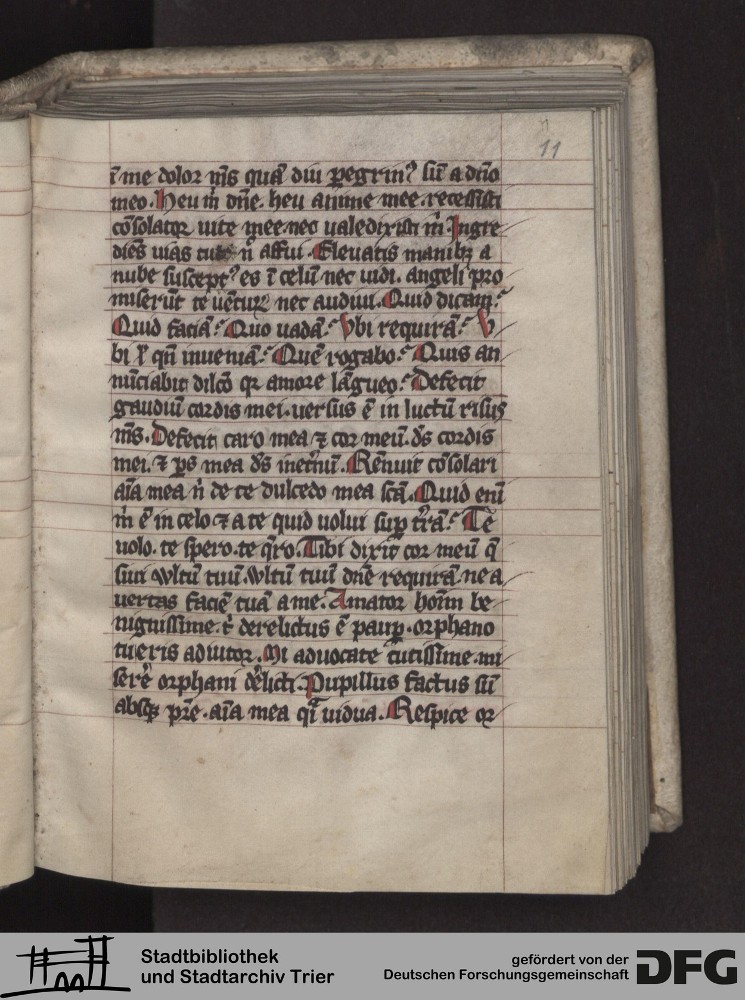 11
ī me dolor m̄s quā diu ꝑegrin⁹ sū a dn̄o
meo. Heu m̄ dn̄e. heu anime mee. recessisti
cōsolator uite mee nec ualedixisti m̄. Ingre
diēs uias tuas n̄ affui. Eleuatis manibꝫ a
nube suscept⁹ es ī celū nec uidi. angeli pro
miserūt te uēturꝫ nec audiui. Quid dicam?
Quid faciā? Quo uadā? Vbi requirā? V
bi ł qn̄ inueniā? Quē rogabo? Quis an
nūciabit dilc̄o qꝛ amore lāgueo? Defecit
gaudiū cordis mei. uersus ē in luctū risus
m̄s. Defecit caro mea ⁊ cor meū. ds̄ cordis
mei. ⁊ ps̄ mea ds̄ inet̄nū. Rēnuit cōsolari
aīa mea n̄ de te dulcedo mea sc̄a. Quid enī
m̄ ē in celo ⁊ a te quid uolui suꝑ tr̄ā? Te
uolo. te spero. te q̄ro. Tibi dixit cor meū q̄
siui wltū tuū. wltū tuū dn̄e requirā ne a
uertas faciē tuā a me. Amator hoīm be
nignissime. t̄ derelictus ē pauꝑ. orphano
tu eris adiutor. Mi aduocate tutissime. mi
serē orphani dēlicti. Pupillus factus sū
absqꝫ pr̄e. aīa mea q̄i uidua. Respice or
Stadtbibliothek
und Stadtarchiv Trier
gefördert von der
Deutschen Forschungsgemeinschaft
DFG